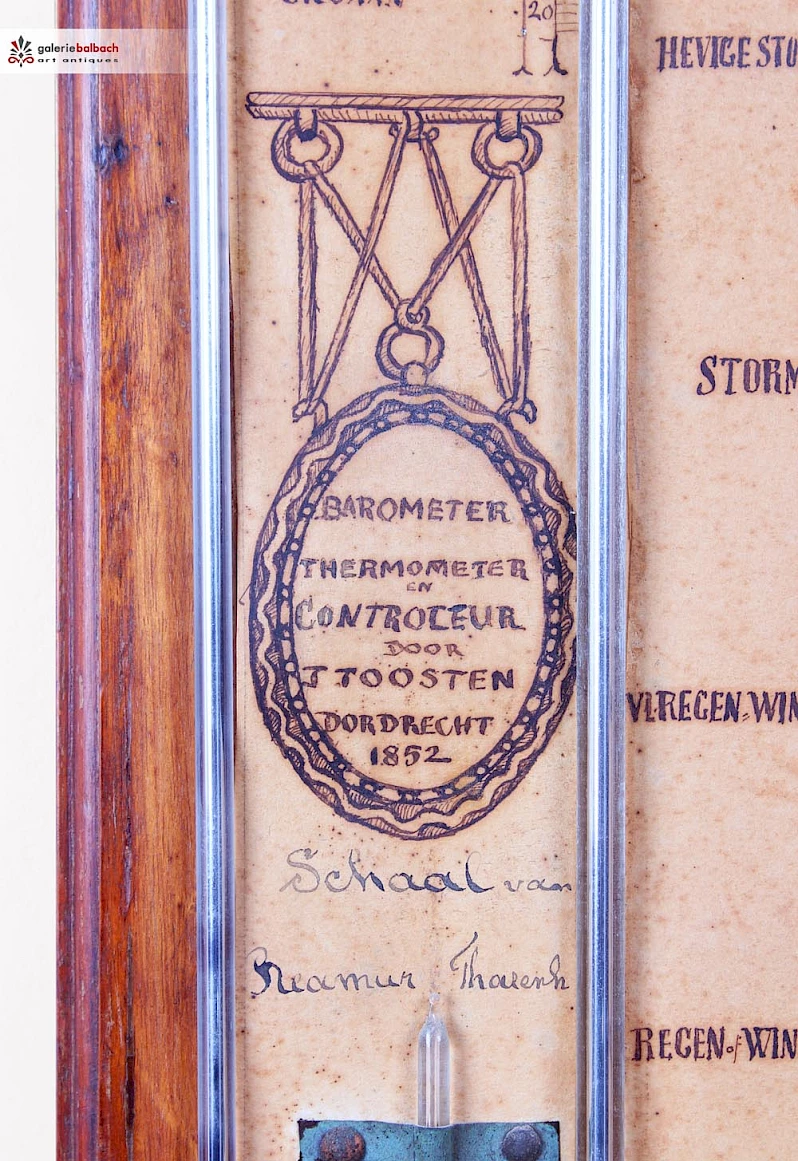 galeriebalbach
art antiques
20
HEVIGE STO
STORM
BAROMETER
THERMOMETER
EN
CONTROLEUR
DOOR
J JOOSTEN
DORDRECHT
1852
VL REGEN WIN
Schaal van
Reamur Fharenh
REGEN of WIN